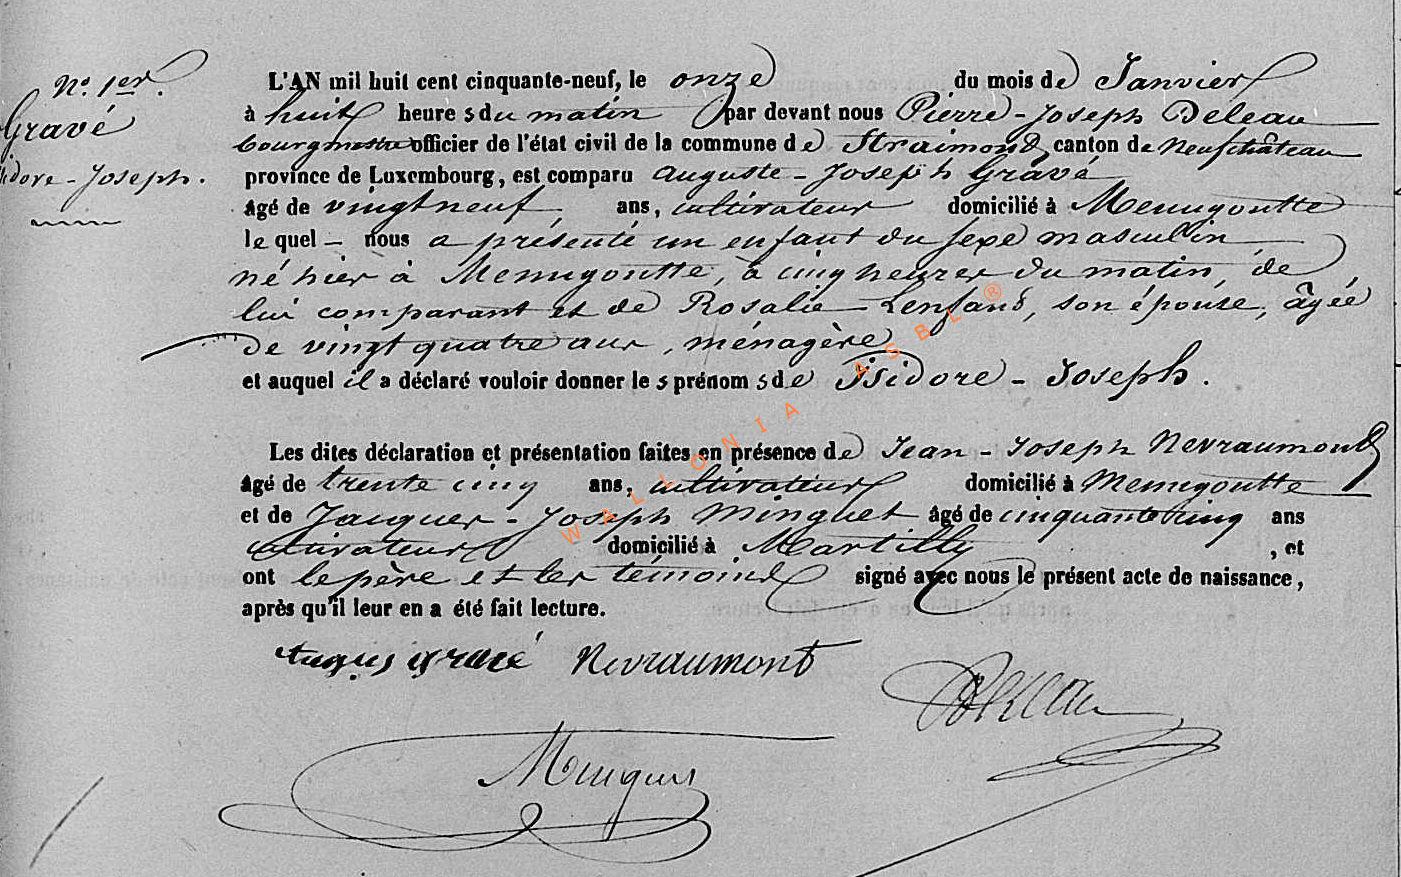 N°. 1er.
Gravé
idore-Joseph.
L'AN mil huit cent cinquante-neuf, le onze du mois de Janvier
à huit heures du matin par devant nous Pierre-Joseph Deleau
bourgmestre officier de l'état civil de la commune de Straimont, canton de Neufchâteau
province de Luxembourg, est comparu Auguste-Joseph Gravé
âgé de vingt neuf ans, cultivateur domicilié à Menugoutte
lequel nous a présenté un enfant du sexe masculin
né hier à Menugoutte, à cinq heures du matin, de
lui comparant et de Rosalie Lenfant, son épouse, âgée
de vingt quatre ans, ménagère
et auquel il a déclaré vouloir donner les prénoms de Isidore-Joseph.
Les dites déclaration et présentation faites en présence de Jean-Joseph Nevraumont
âgé de trente cinq ans, cultivateur domicilié à Menugoutte
et de Jacques-Joseph Minguet âgé de cinquante cinq ans
cultivateur domicilié à Martilly, et
ont le père et les témoins signé avec nous le présent acte de naissance,
après qu'il leur en a été fait lecture.
Gravé Nevraumont
Deleau
WALLONIA ASBL ®